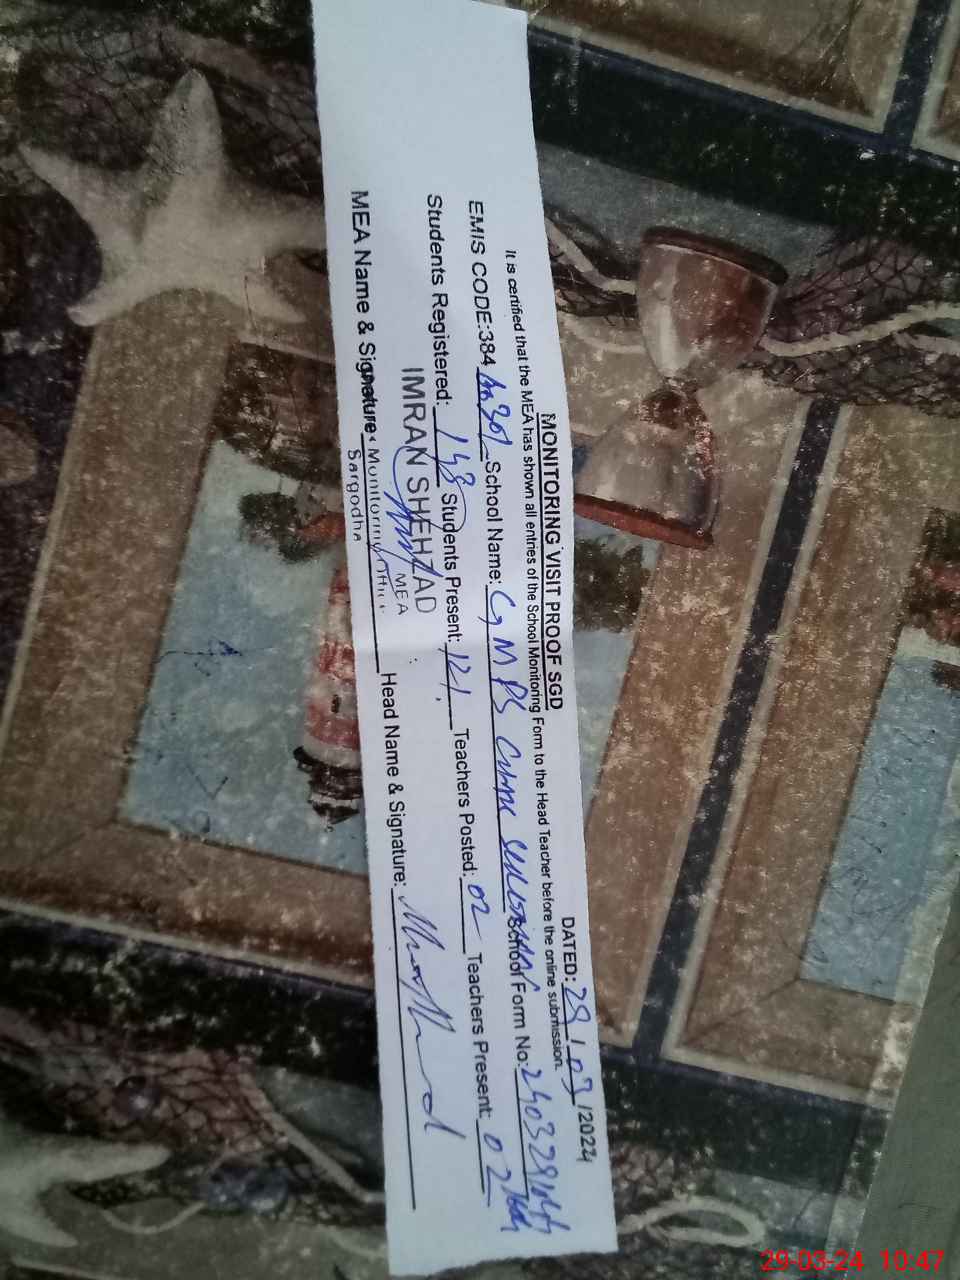 MONITORING VISIT PROOF SGD
DATED: 29 / 03 /2024
It is certified that the MEA has shown all entries of the School Monitoring Form to the Head Teacher before the online submission.
EMIS CODE:384 School Name: GMPS School Form No:
Students Registered: 148 Students Present: 121 Teachers Posted: 02 Teachers Present: 02
IMRAN SHEHZAD
MEA
MEA Name & Signature Head Name & Signature:
Monitoring Office
Sargodha
29-03-24 10:47